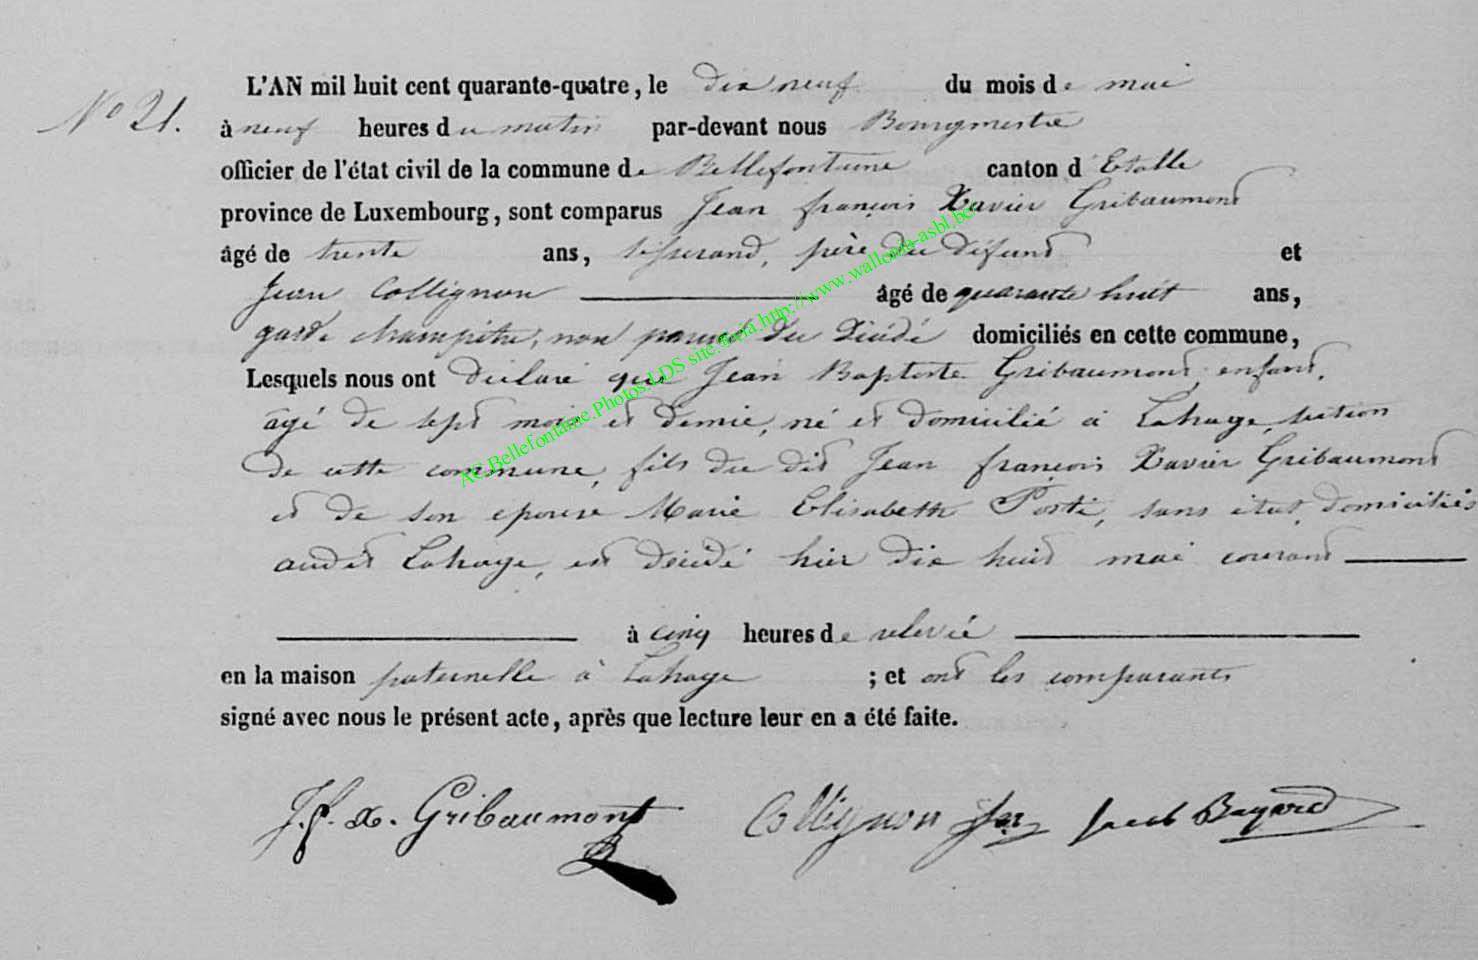 L'AN mil huit cent quarante-quatre, le dix neuf du mois de mai
No 21.
à neuf heures du matin par-devant nous Bourgmestre
officier de l'état civil de la commune de Bellefontaine canton d'Etalle
province de Luxembourg, sont comparus Jean françois Xavier Gribaumont
âgé de trente ans, tisserand, père du défunt et
Jean Collignon âgé de quarante huit ans,
garde champêtre, non parent du décédé domiciliés en cette commune,
Lesquels nous ont déclaré que Jean Baptiste Gribaumont, enfant,
âgé de sept mois et demie, né et domicilié à Lahage, section
de cette commune, fils du dit Jean françois Xavier Gribaumont
et de son epouse Marie Elisabeth Poste, sans état, domiciliés
audit Lahage, est décédé hier dix huit mai courant
à cinq heures de relevée
en la maison paternelle à Lahage ; et ont les comparants
signé avec nous le présent acte, après que lecture leur en a été faite.
J. f. x. Gribaumont Collignon Jacob Bayard
AC.Bellefontaine.Photos.LDS site.geneia.http://www.wallonia-asbl.be/